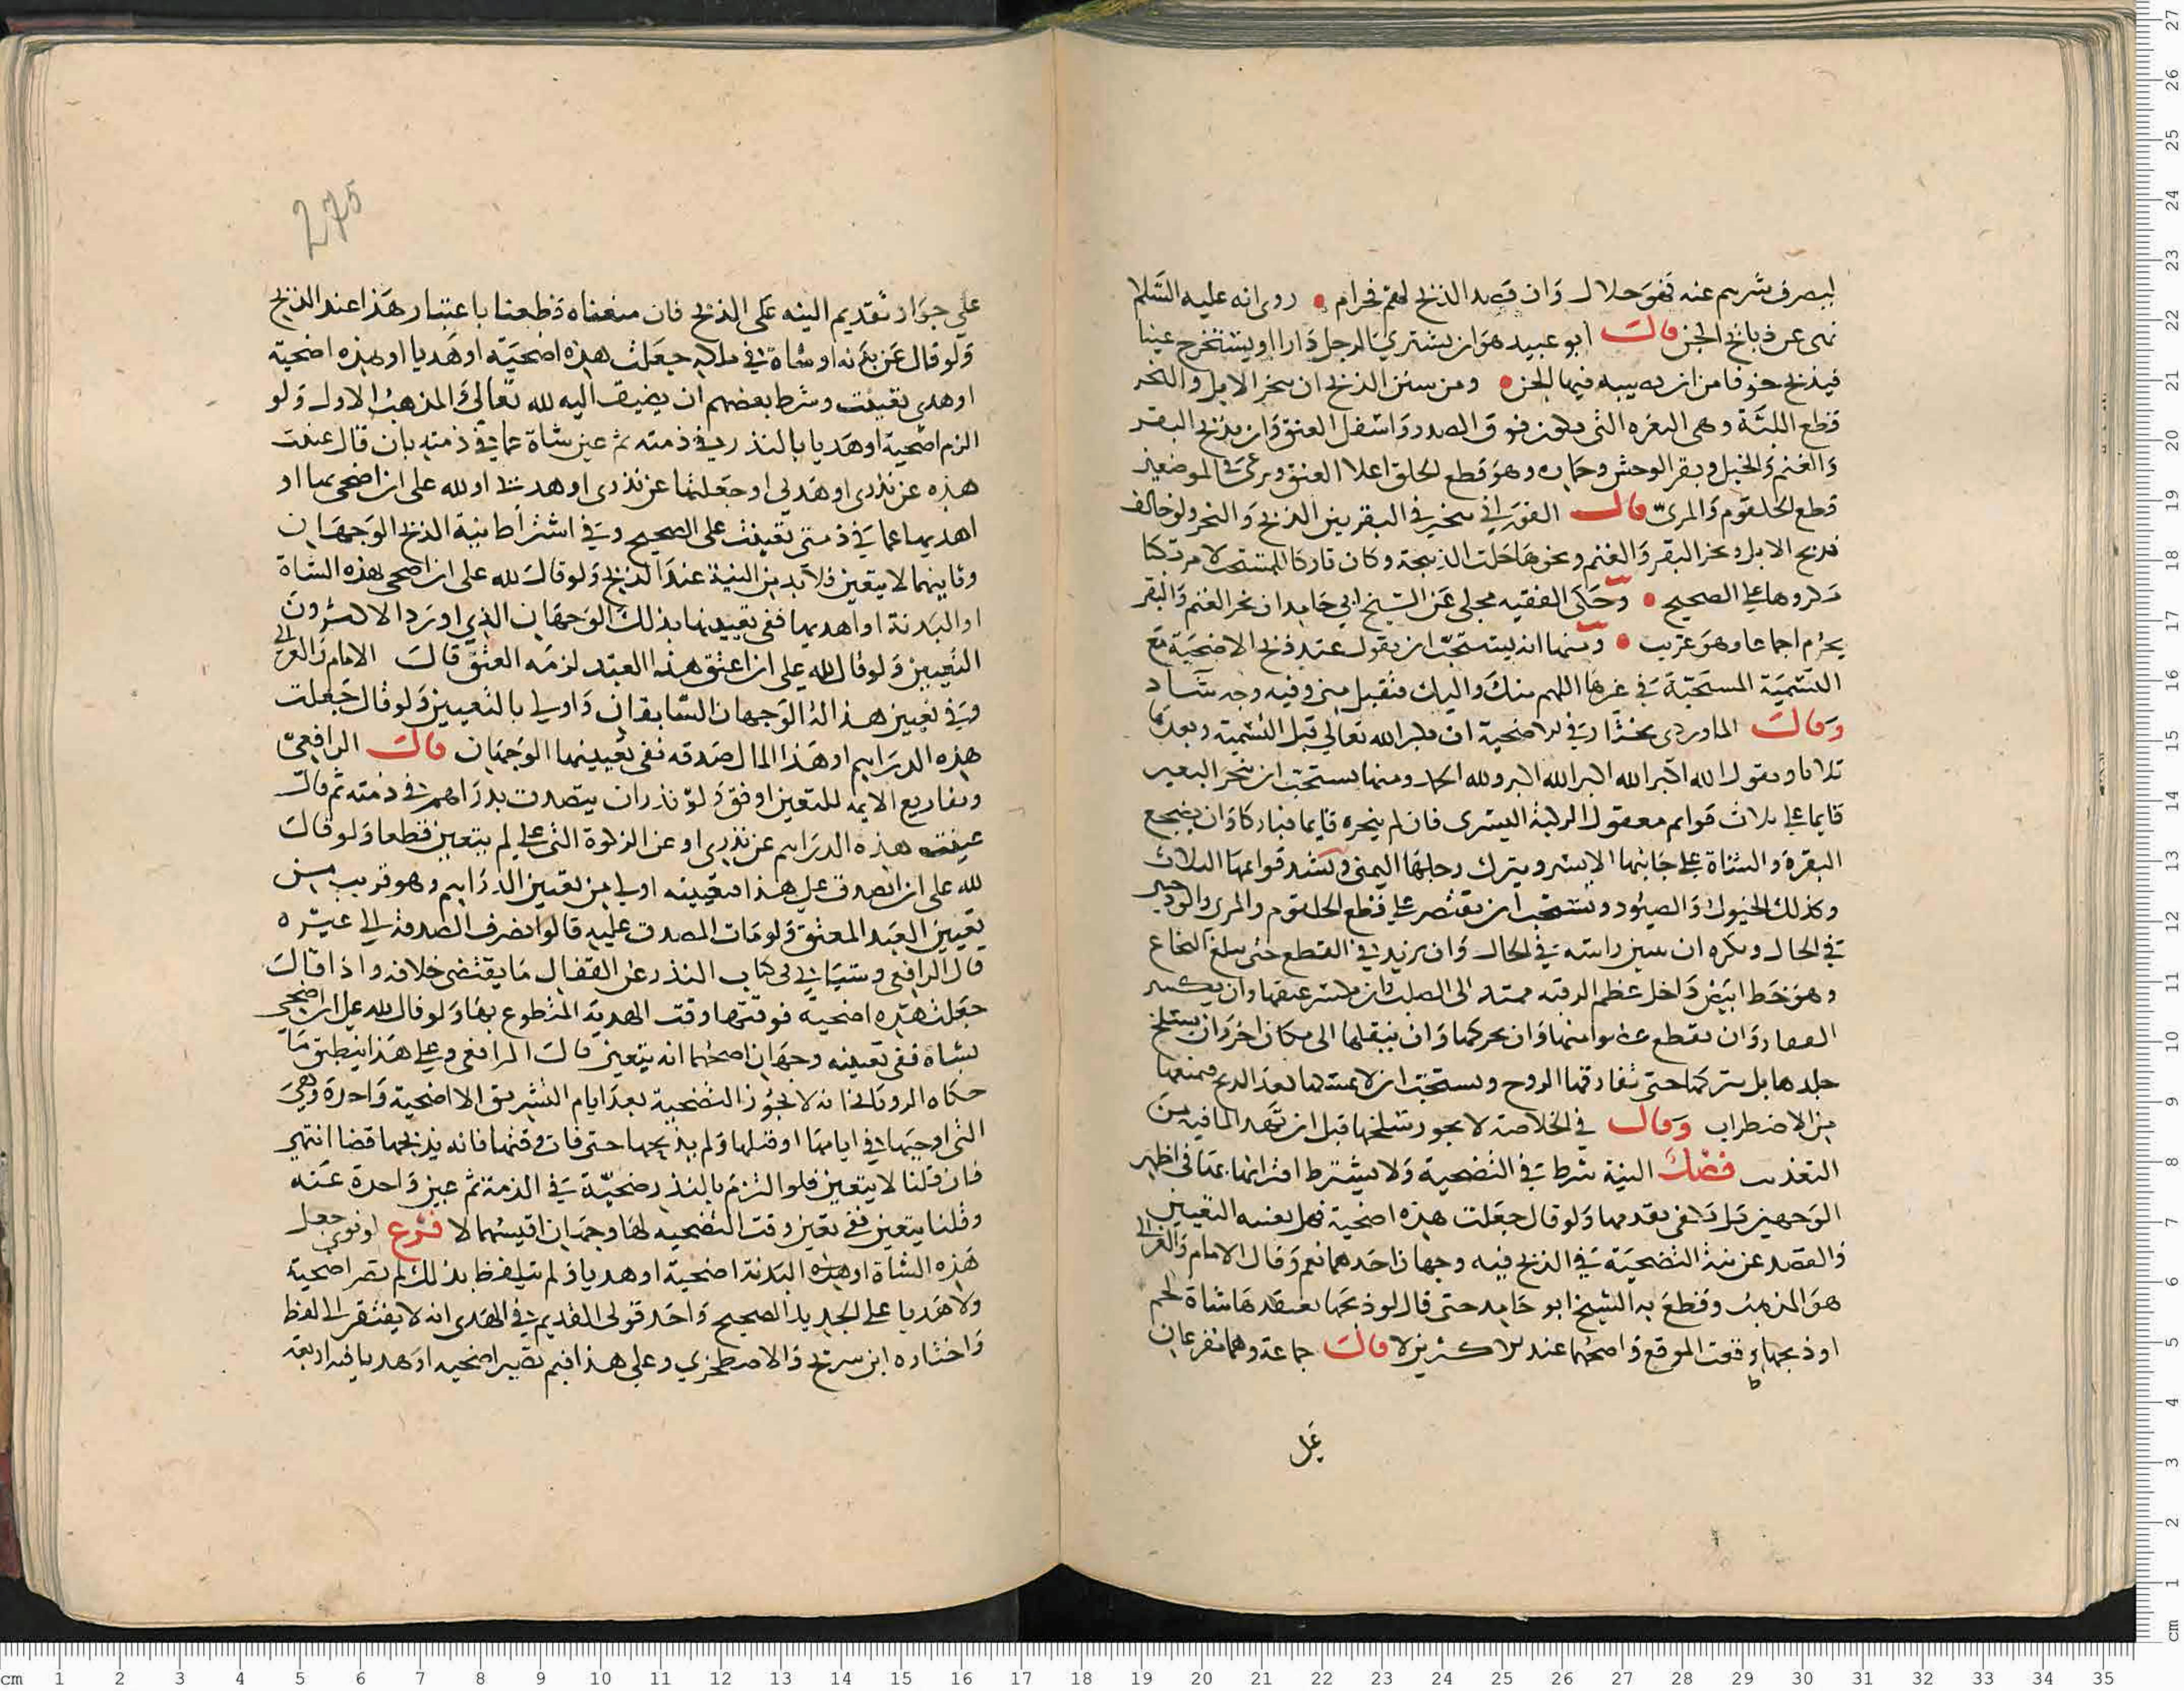 ليصرف شرهم عنه فهو حلال وان قصد الذبح لهم فحرام روى انه عليه السلام
نهى عن ذبائح الجن قال ابو عبيد هو ان يشتري الرجل دارا او يستخرج عينا
فيذبح خوفا من ان يصيبه فيها الجن ومن سنن الذبح ان ينحر الابل والنحر
قطع اللبة وهي الثغره التي تكون فوق الصدر واسفل العنق وان يذبح البقر
والغنم والخيل وبقر الوحش وحماره وهو قطع الحلق اعلا العنق وبرعى في الموضعين
قطع الحلقوم والمرئ قال الفوراني يتخير في البقر بين الذبح والنحر ولو خالف
فذبح الابل ونحر البقر والغنم ونحوها حلت الذبيحة وكان تاركا للمستحب لا مرتكبا
مكروها على الصحيح وحكى الفقيه مجلي عن الشيخ ابي حامد ان نحر الغنم والبقر
يحرم اجماعا وهو غريب ومنها انه يستحب ان يقول عند ذبح الاضحية مع
التسمية المستحبة في غيرها اللهم منك واليك فتقبل مني وفيه وجه شاذ
وقال الماوردي يختار في الاضحية ان يكبر الله تعالى قبل التسمية وبعدها
ثلاثا ويقول الله اكبر الله اكبر الله اكبر ولله الحمد ومنها يستحب ان ينحر البعير
قايما على ثلاث قوايم معقول الركبة اليسرى فان لم ينحره قايما فباركا وان يضجع
البقرة والشاة على جانبها الايسر ويترك رجلها اليمنى وتشد قوايمها الثلاث
وكذلك الخيول والصيود ويستحب ان يقتصر على قطع الحلقوم والمرئ والودجين
في الحال ويكره ان يبين راسه في الحال وان يزيد في القطع حتى يبلغ النخاع
وهو خط ابيض داخل عظم الرقبه ممتد الى الصلب وان يكسر عنقها وان يكسر
الفقار وان يقطع عضوا منها وان يحركها وان ينقلها الى مكان اخر وان يسلخ
جلدها بل يتركها حتى تفارقها الروح ويستحب ان لا يمسكها بعد الذبح فيمنعها
من الاضطراب وقال في الخلاصة لا يجوز سلخها قبل ان تهدا لما فيه من
التعذيب فصل النية شرط في التضحية ولا يشترط اقترانها بها في اظهر
الوجهين بل يكفي تقدمها ولو قال جعلت هذه اضحية فهل يغنيه التعيين
والقصد عن نية التضحية في الذبح فيه وجهان احدهما نعم وقال الامام والغزالي
هو المذهب وقطع به الشيخ ابو حامد حتى قال لو ذبحها يعتقدها شاة لحم
او ذبحها وقعت الموقع واصحهما عند الاكثرين لا قال جماعة وهما مفرعان
على
275
على جواز تقديم النيه على الذبح فان منعناه قطعنا باعتبار هذا عند الذبح
ولو قال عن بدنه او شاة في ملكه جعلت هذه اضحية او هديا او هذه اضحية
او هدي تعينت وشرط بعضهم ان يضيف اليه لله تعالى والمذهب الاول ولو
الزم اضحية او هديا بالنذر في ذمته ثم عين شاة عما في ذمته بان قال عينت
هذه عن نذري او هديي او جعلتها عن نذري او هديي او لله علي ان اضحي بها او
اهديها عما في ذمتي تعينت على الصحيح وفي اشتراط نية الذبح الوجهان
وثانيهما لا يتعين فلا بد من النية عند الذبح ولو قال لله علي ان اضحي بهذه الشاة
او البدنة او اهديها ففي تعيينها بذلك الوجهان الذي اورد الاكثرون
التعيين ولو قال لله علي ان اعتق هذا العبد لزمه العتق قال الامام والغزالي
وفي تعيين هذا له الوجهان السابقان واولى بالتعيين ولو قال جعلت
هذه الدراهم او هذا المال صدقه ففي تعيينهما الوجهان قال الرافعي
وتفاريع الايمه للتعين اوفق ولو نذر ان يتصدق بدراهم في ذمته ثم قال
عينت هذه الدراهم عن نذري او عن الزكوة التي علي لم يتعين قطعا ولو قال
لله علي ان اتصدق على هذا فتعيينه اولى من تعيين الدراهم وهو قريب من
تعيين العبد المعتق ولو مات المصدق عليه قالوا تصرف الصدقة الى غيره
قال الرافعي وسياتي في كتاب النذر عن القفال ما يقتضي خلافه واذا قال
جعلت هذه اضحية فوقتها وقت الهدية المتطوع بها ولو قال لله علي ان اضحي
بشاه ففي تعيينه وجهان اصحهما انه يتعين قال الرافعي وعلى هذا ينطبق ما
حكاه الروياني انه لا يجوز التضحية بعد ايام التشريق الا اضحية واحدة وهي
التي اوجبها في ايامها او قبلها ولم يذبحها حتى فات وقتها فانه يذبحها قضا انتهى
فان قلنا لا يتعين فلو التزم بالنذر ضحية في الذمة ثم عين واحدة عنه
وقلنا يتعين ففي تعين وقت التضحيه لها وجهان اقيسهما لا فرع لو نوى جعل
هذه الشاة او هذه البدنة اضحية او هديا ولم يتلفظ بذلك لم تصر اضحية
ولا هديا على الجديد الصحيح واحد قولي القديم في الهدى انه لا يفتقر الى لفظ
واختاره ابن سريج والاصطخري وعلى هذا فبم تصير اضحيه او هديا فيه اربعة